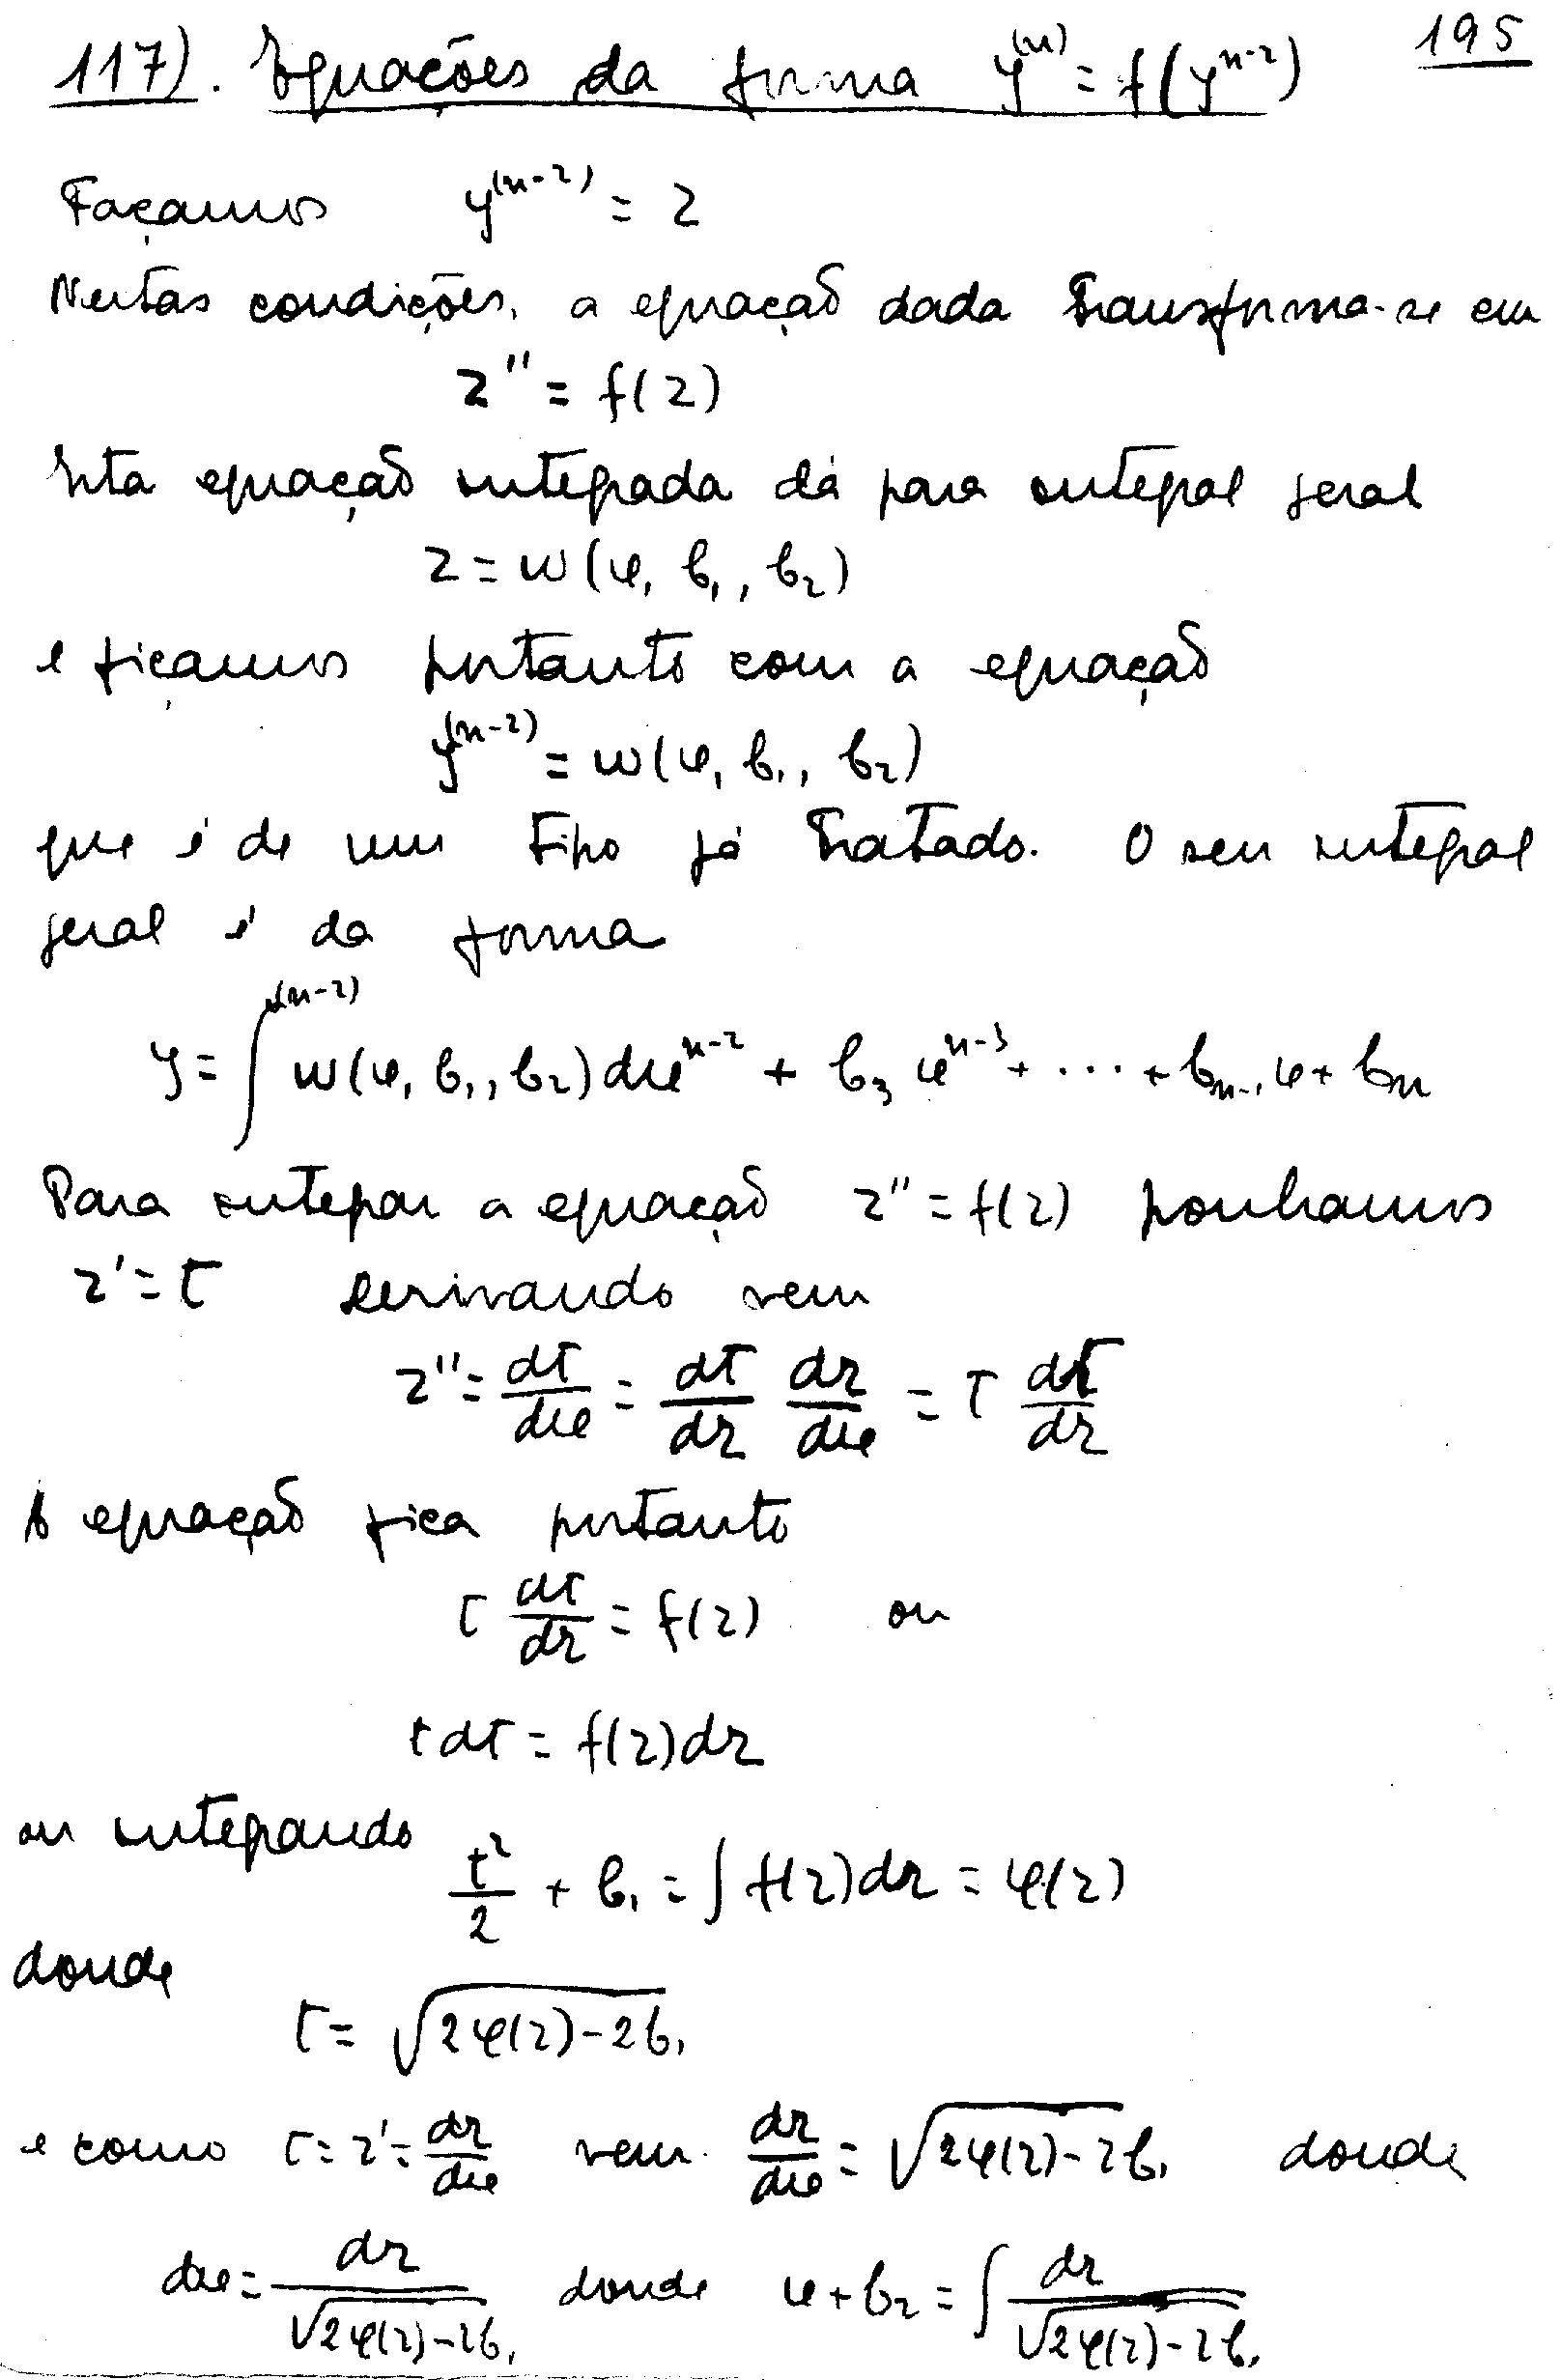 195
117). Equações da forma y^(n) = f(y^n-2)
Façamos y^(n-2) = z
Nestas condições, a equação dada transforma-se em
z'' = f(z)
Esta equação integrada dá para integral geral
z = w(x, b₁, b₂)
e ficamos portanto com a equação
y^(n-2) = w(x, b₁, b₂)
que é de um tipo já tratado. O seu integral
geral é da forma
y = ∫^(n-2) w(x, b₁, b₂) dx^n-2 + b₃ x^n-3 + ... + b_n-1 x + b_n
Para integrar a equação z'' = f(z) ponhamos
z' = t derivando vem
z'' = dt/dx = dt/dz dz/dx = t dt/dz
A equação fica portanto
t dt/dz = f(z) ou
t dt = f(z) dz
ou integrando
t²/2 + b₁ = ∫ f(z) dz = φ(z)
donde
t = √(2φ(z) - 2b₁)
e como t = z' = dz/dx vem dz/dx = √(2φ(z) - 2b₁) donde
dx = dz/√(2φ(z) - 2b₁) donde x + b₂ = ∫ dz/√(2φ(z) - 2b₁)